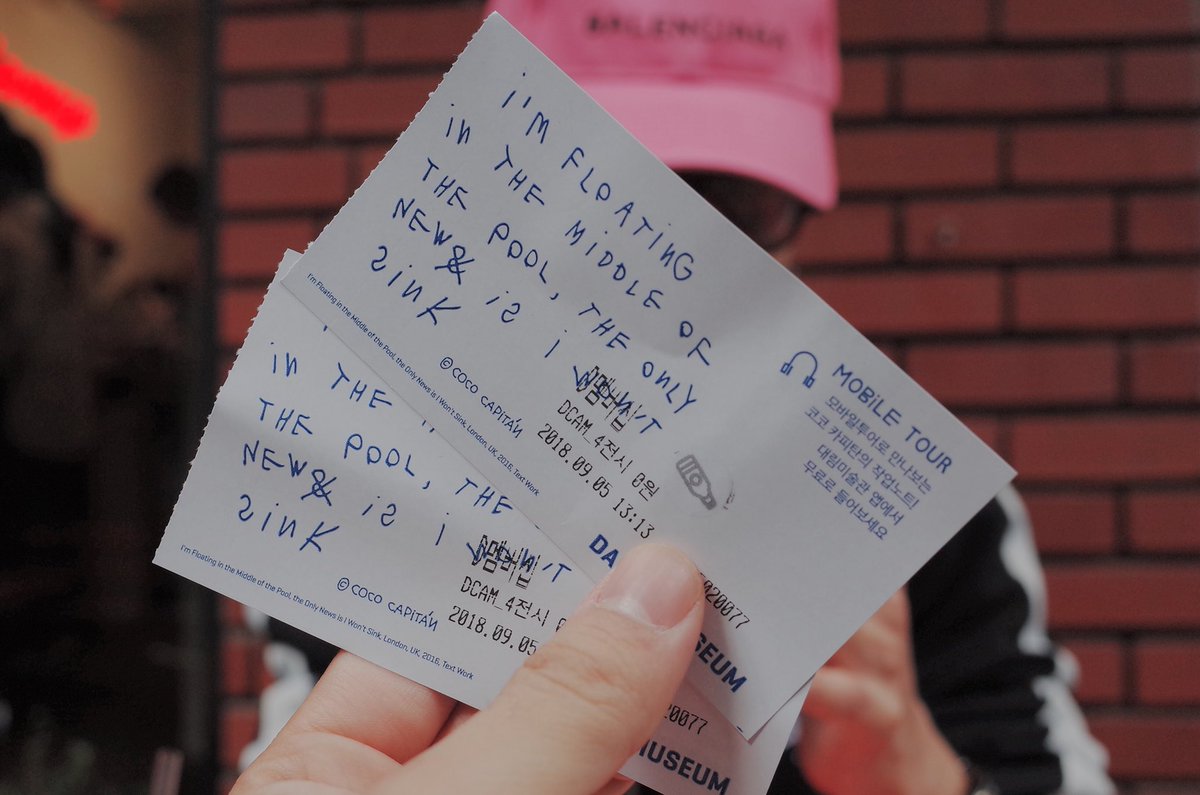 BALENCIAGA
I'M FLOATING
IN THE MIDDLE OF
THE POOL, THE ONLY
NEWS IS I WON'T
SINK
I'm Floating in the Middle of the Pool, the Only News Is I Won't Sink, London, UK, 2016, Text Work
© COCO CAPITÁN
멤버십
DCAM_4전시 0원
2018.09.05 13:13
MOBILE TOUR
모바일투어로 만나보는
코코 카피탄의 작업노트!
대림미술관 앱에서
무료로 들어보세요
DA
020077
SEUM
IN THE
THE POOL, THE
NEWS IS I WON'T
SINK
I'm Floating in the Middle of the Pool, the Only News Is I Won't Sink, London, UK, 2016, Text Work
© COCO CAPITÁN
멤버십
DCAM_4전시
2018.09.05
20077
MUSEUM